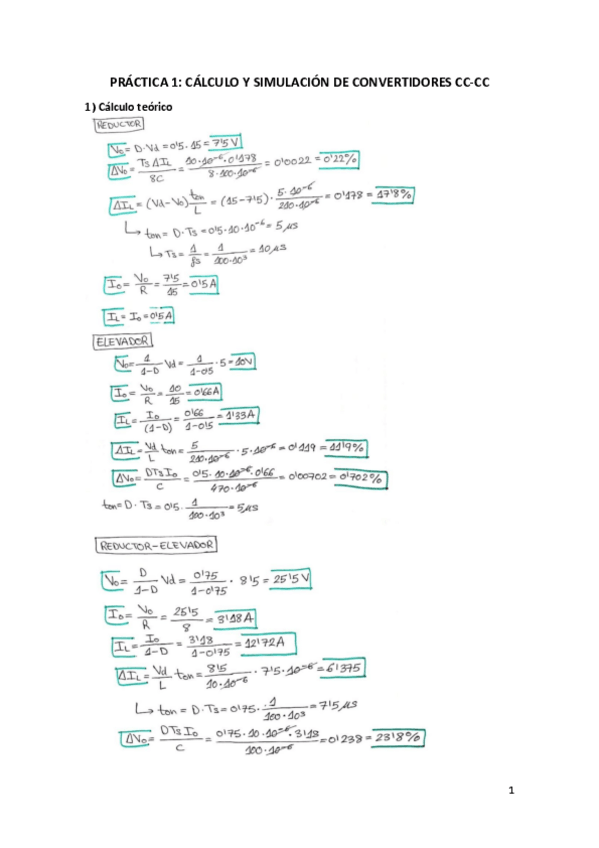 PRÁCTICA 1: CÁLCULO Y SIMULACIÓN DE CONVERTIDORES CC-CC
1) Cálculo teórico
REDUCTOR
Vo = D·Vd = 0'5·15 = 7'5 V
ΔVo = Ts ΔIL / 8C = 10·10⁻⁶·0'178 / 8·100·10⁻⁶ = 0'0022 = 0'22%
ΔIL = (Vd-Vo) ton / L = (15-7'5)· 5·10⁻⁶ / 210·10⁻⁶ = 0'178 = 17'8%
↳ ton = D·Ts = 0'5·10·10⁻⁶ = 5 μs
↳ Ts = 1 / fs = 1 / 100·10³ = 10 μs
Io = Vo / R = 7'5 / 15 = 0'5A
IL = Io = 0'5A
ELEVADOR
Vo = 1 / 1-D Vd = 1 / 1-0'5 · 5 = 10V
Io = Vo / R = 10 / 15 = 0'66A
IL = Io / (1-D) = 0'66 / 1-0'5 = 1'33A
ΔIL = Vd / L ton = 5 / 210·10⁻⁶ · 5·10⁻⁶ = 0'119 = 11'9%
ΔVo = DTs Io / C = 0'5·10·10⁻⁶·0'66 / 470·10⁻⁶ = 0'00702 = 0'702%
ton = D·Ts = 0'5· 1 / 100·10³ = 5 μs
REDUCTOR-ELEVADOR
Vo = D / 1-D Vd = 0'75 / 1-0'75 · 8'5 = 25'5 V
Io = Vo / R = 25'5 / 8 = 3'18A
IL = Io / 1-D = 3'18 / 1-0'75 = 12'72A
ΔIL = Vd / L ton = 8'5 / 10·10⁻⁶ · 7'5·10⁻⁶ = 6'375
↳ ton = D·Ts = 0'75· 1 / 100·10³ = 7'5 μs
ΔVo = DTs Io / C = 0'75·10·10⁻⁶·3'18 / 100·10⁻⁶ = 0'238 = 23'8%
1